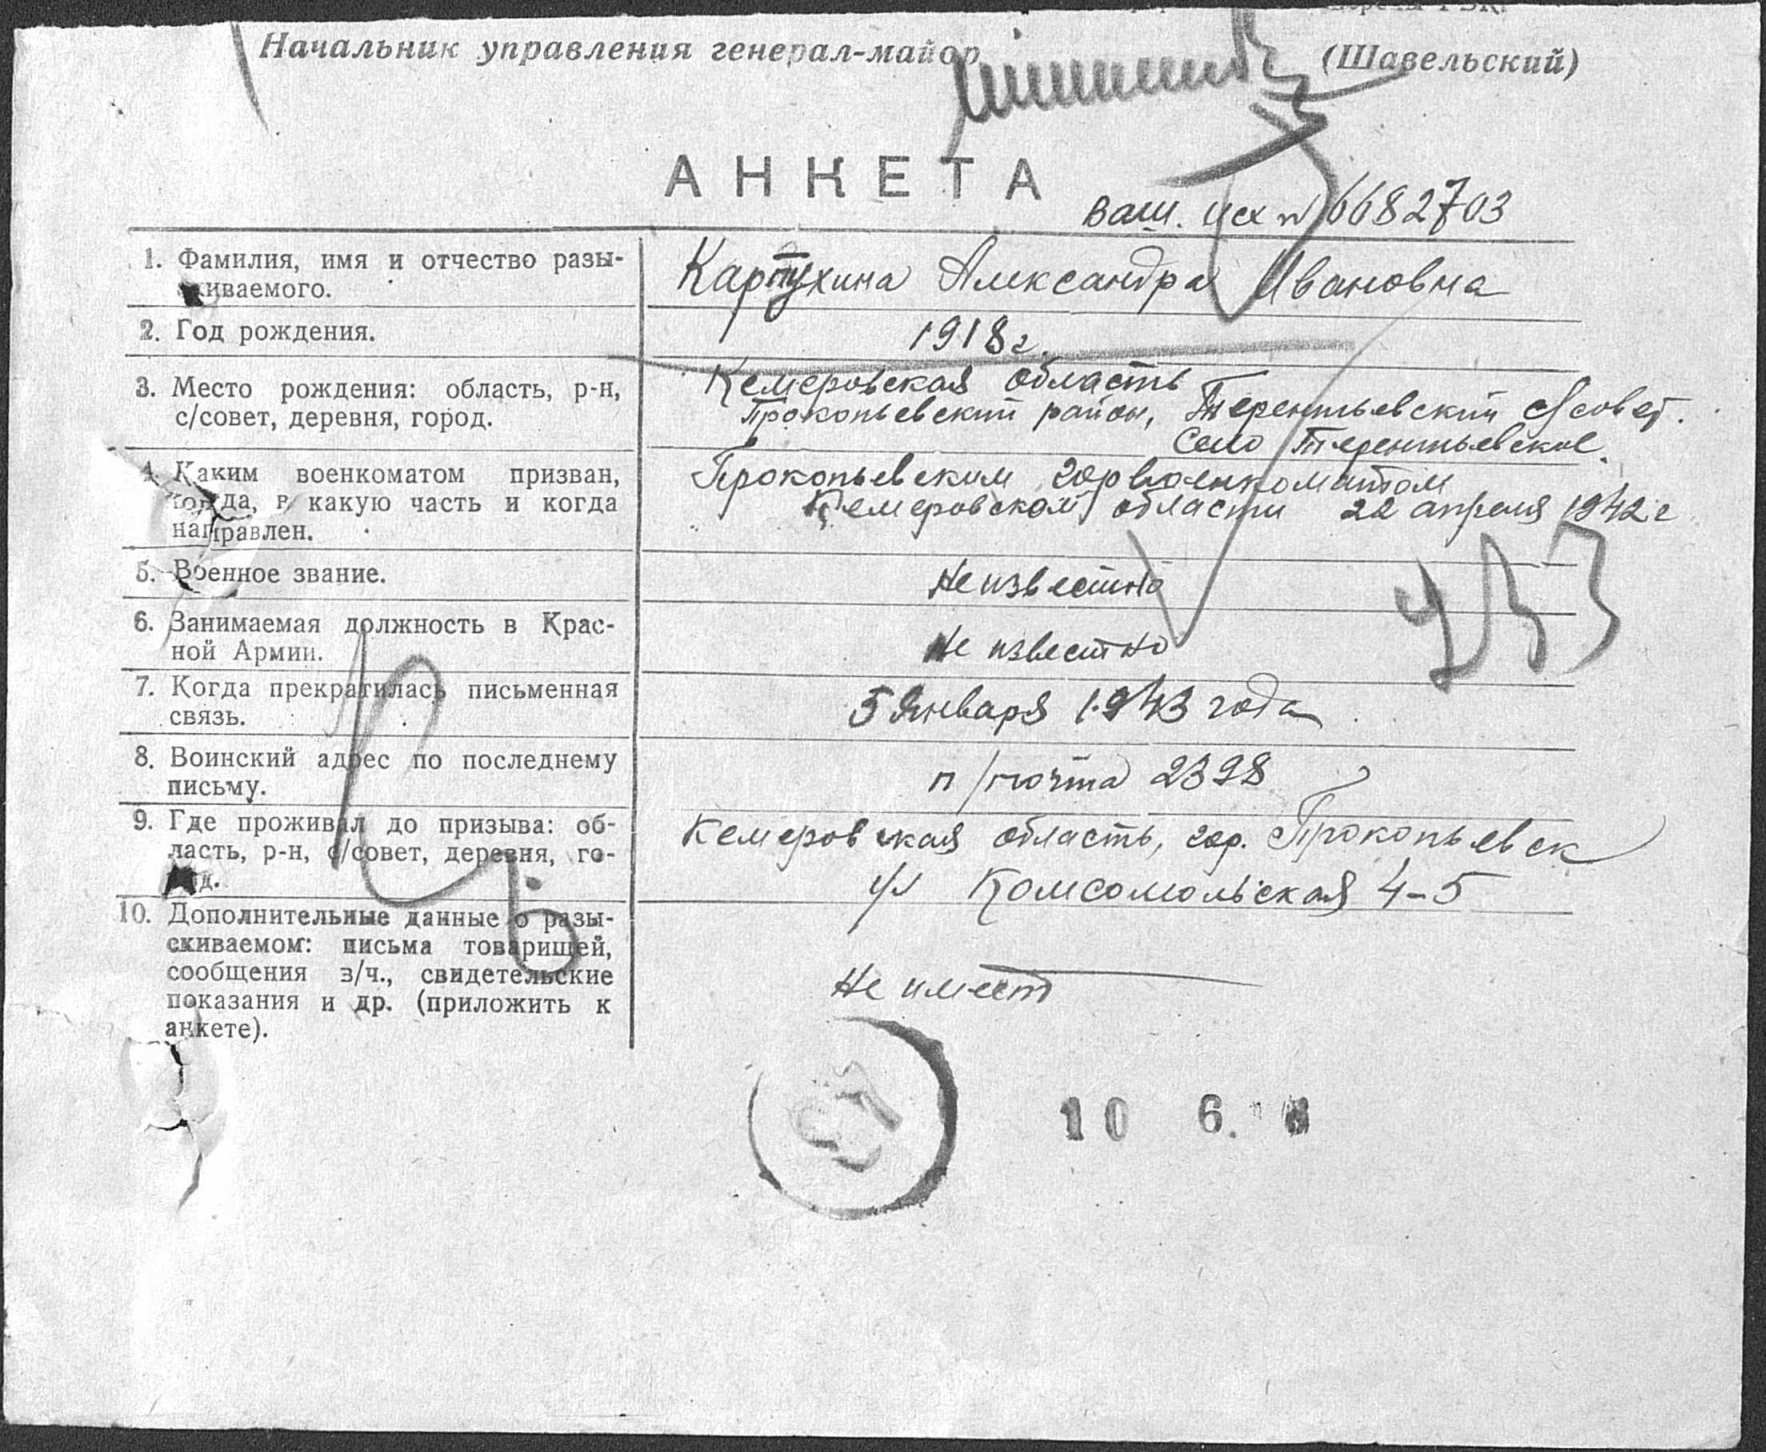 Начальник управления генерал-майор (Шавельский)
АНКЕТА
Ваш. исх № 6682703
1. Фамилия, имя и отчество разы-
скиваемого.
Карпухина Александра Ивановна
2. Год рождения.
1918 г.
3. Место рождения: область, р-н,
с/совет, деревня, город.
Кемеровская область
Прокопьевский район, Терентьевский с/совет.
село Терентьевское.
4. Каким военкоматом призван,
когда, в какую часть и когда
направлен.
Прокопьевским горвоенкоматом
Кемеровской области 22 апреля 1942 г
5. Военное звание.
Не известно
6. Занимаемая должность в Крас-
ной Армии.
Не известно
7. Когда прекратилась письменная
связь.
5 января 1943 года
8. Воинский адрес по последнему
письму.
п/почта 2398
9. Где проживал до призыва: об-
ласть, р-н, с/совет, деревня, го-
род.
Кемеровская область, гор. Прокопьевск
ул Комсомольская 4-5
10. Дополнительные данные о разы-
скиваемом: письма товарищей,
сообщения з/ч., свидетельские
показания и др. (приложить к
анкете).
Не имеет
10 6.